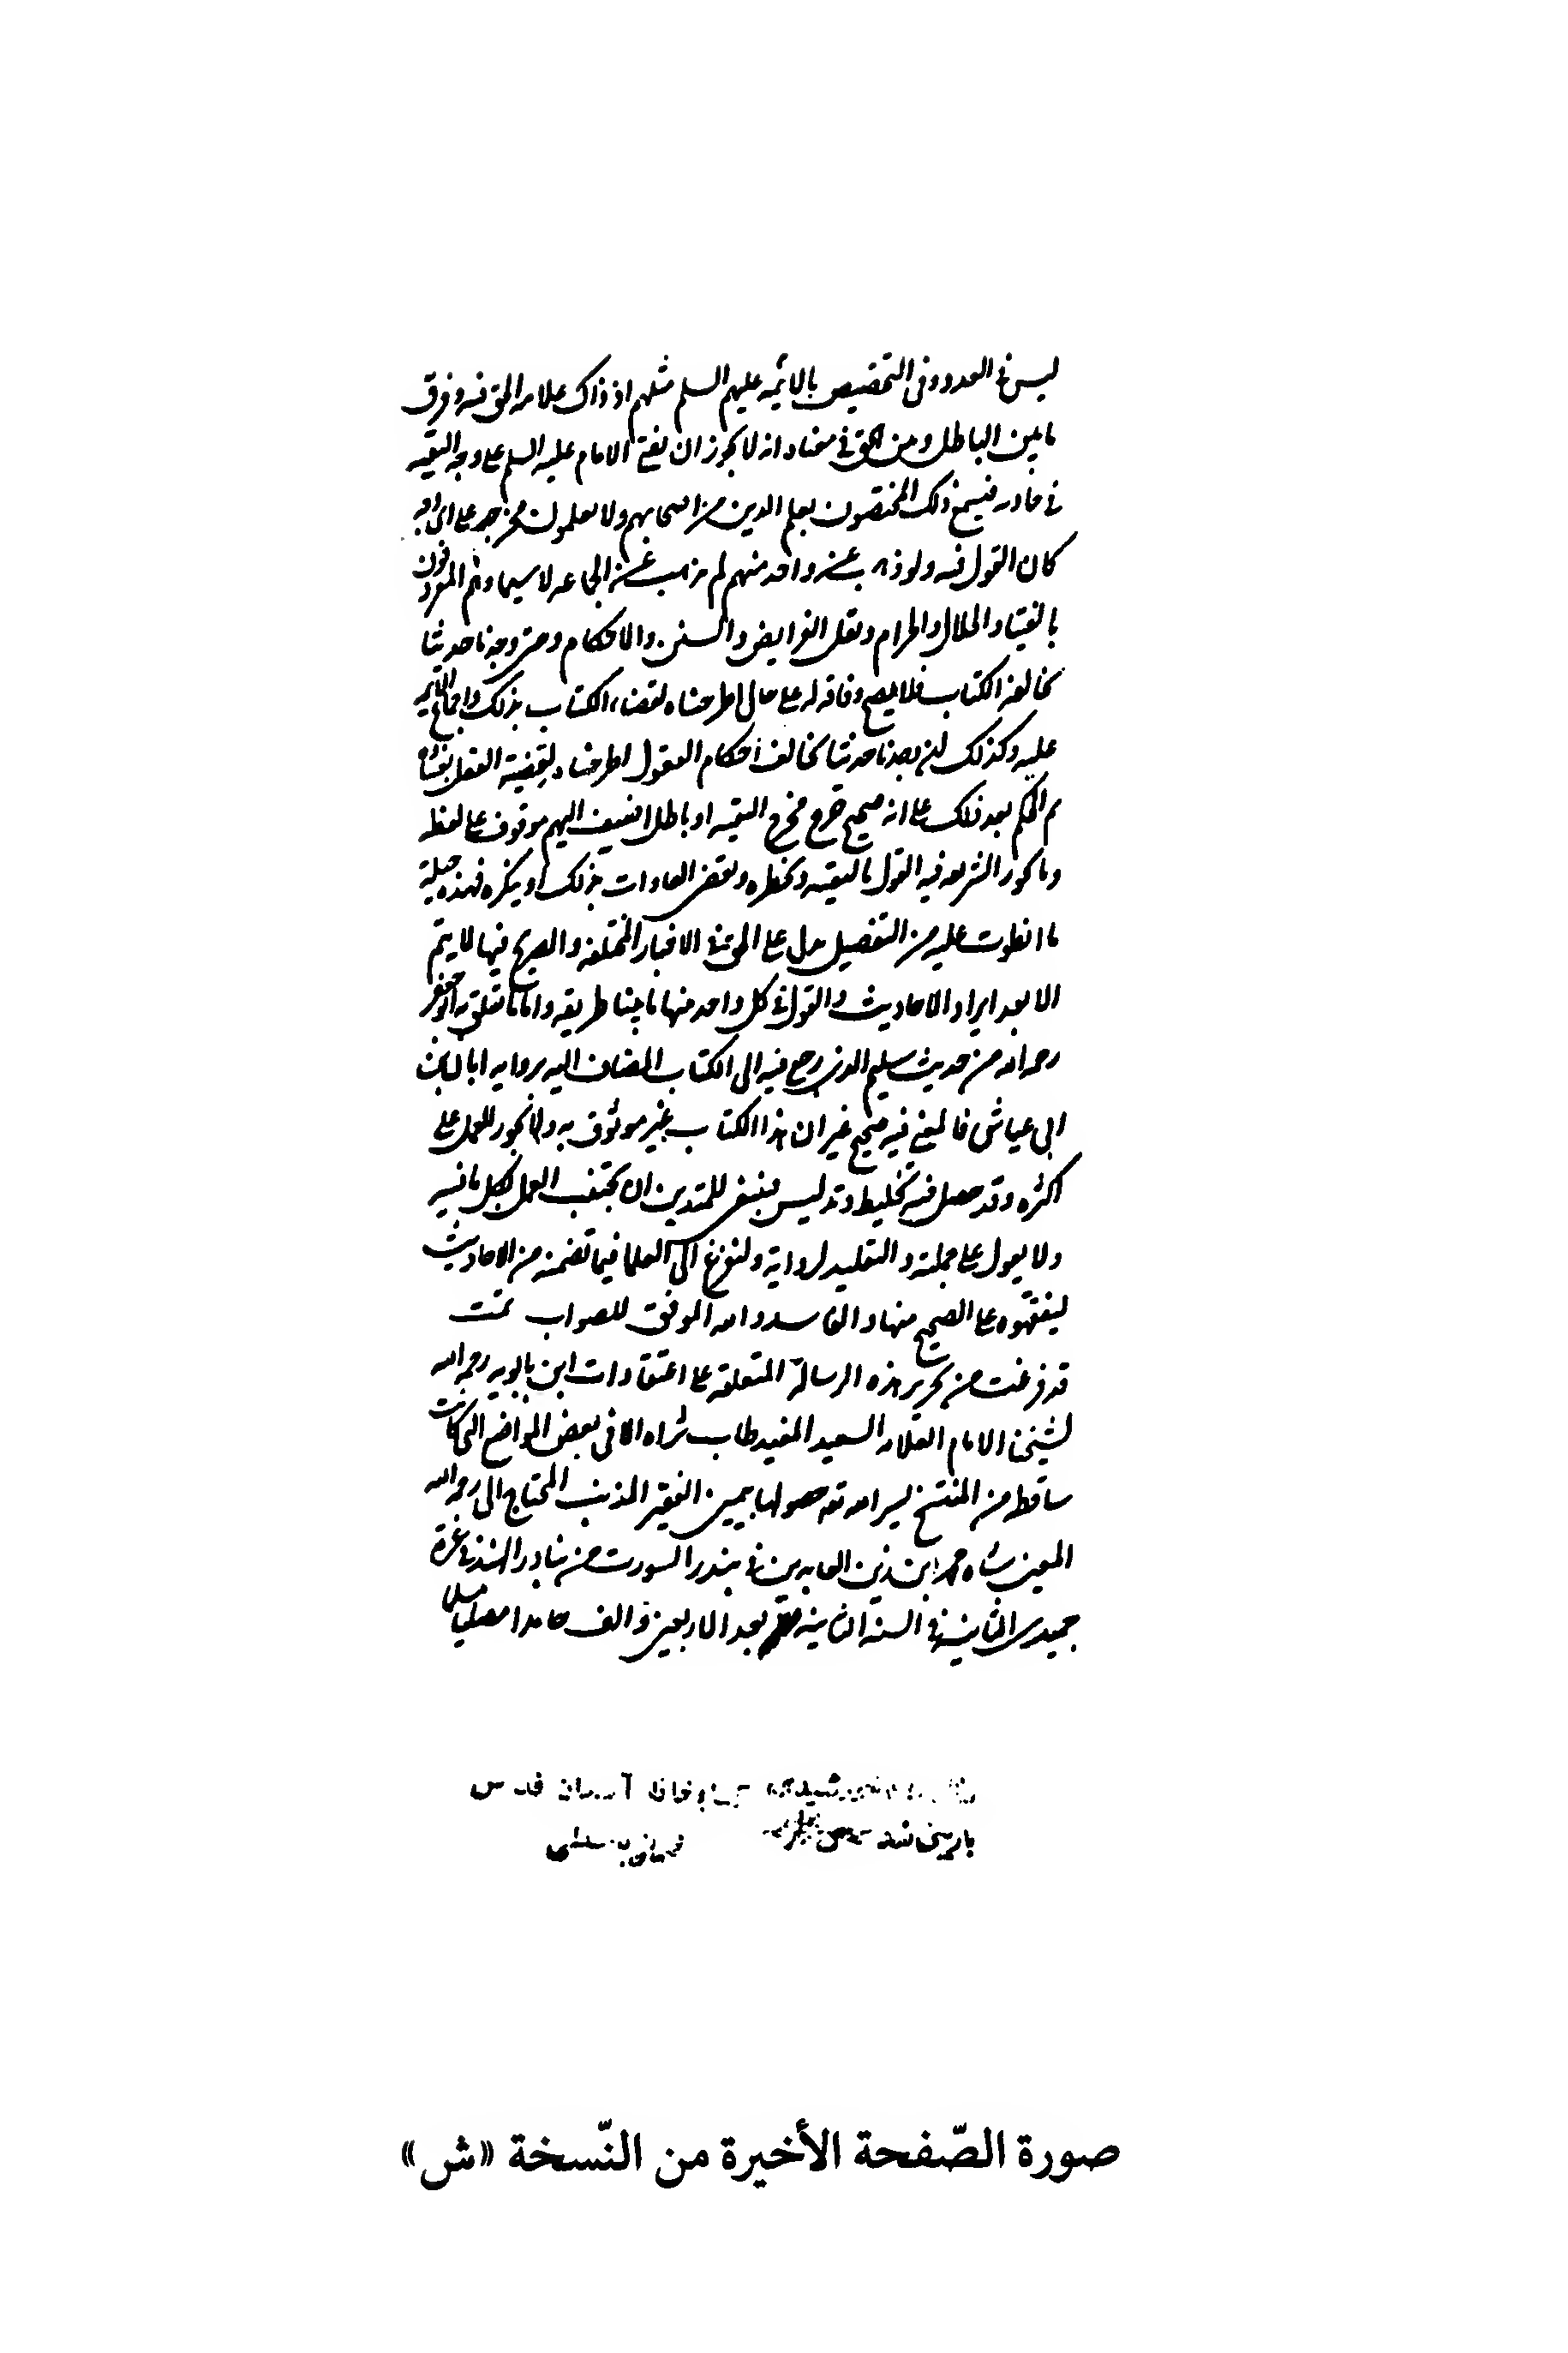 ليس في العدد وفي التخصيص بالائمة عليهم السلم مثلهم اذ ذاك علامه الحق فيه وفرق
ما بين الباطل وبين الحق في معناه انه لا يجوز ان يفتي الامام عليه السلم على وجه التقيه
في حادثه فيسمع ذلك المختصون بعلم الدين من اصحابهم ولا يعلمون مخرجه على اي وجه
كان القول فيه ولو ذهب عن واحد منهم لم يذهب عن الجماعه لا سيما وهم المعروفون
بالفتيا والحلال والحرام ونقل الفرايض والسنن والاحكام ومتى وجدنا حديثا
يخالفه الكتاب فلا يصح وفاقه له على حال اطرحناه لقضاء الكتاب بذلك واجماع الائمه
عليه وكذلك ان وجدنا حديثا يخالف أحكام العقول اطرحناه لقضية العقل بفساده
ثم الحكم بعد ذلك على انه صحيح خرج مخرج التقيه او باطل اضيف اليهم موقوف على لفظه
وما تجوز الشريعه فيه القول بالتقيه وتحظره وتقضي العادات بذلك او تنكره فهذه جملة
ما انطوت عليه من التفصيل يدل على الحق في الاخبار المختلفه والصريح فيها لا يتم
الا بعد ايراد الاحاديث والقول في كل واحد منها ما بينا طريقه واما ما تعلق به ابو جعفر
رحمه الله من حديث سليم الذي رجع فيه الى الكتاب المضاف اليه بروايه ابان بن
ابي عياش فالمعنى فيه صحيح غير ان هذا الكتاب غير موثوق به ولا يجوز العمل على
اكثره وقد حصل فيه تخليط وتدليس ينبغي للمتدين ان يجتنب العمل بكل ما فيه
ولا يعول على جملته والتقليد لرواية وليفزع الى العلما فيما تضمنه من الاحاديث
ليفقهوه على الصحيح منها والفاسد والله الموفق للصواب تمت
قد فرغت من تحرير هذه الرسالة المتعلقه على اعتقادات ابن بابويه رحمه الله
لشيخنا الامام العلامه السعيد المفيد طاب ثراه الا في بعض المواضع التي كانت
ساقطه من المنتسخ يسر الله تعه حصولها بيمين الفقير المذنب المحتاج الى رحمه الله
المعين شاه محمد ابن زين العابدين في بندر السورت من بنادر الهند في غرة
جميدى الثانية في السنه الثامنه بعد الاربعين والف حامدا مصليا مسلما
آستان قدس
صورة الصّفحة الأخيرة من النّسخة «ش»